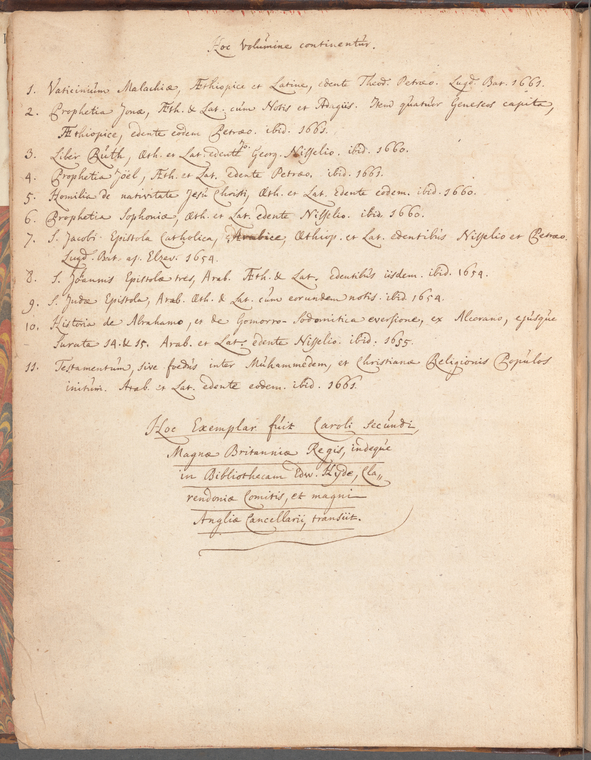 Hoc Volumine continentur.
1. Vaticinium Malachiæ, Æthiopice et Latine, edente Theod. Petræo. Lugd. Bat. 1661.
2. Prophetia Jonæ, Æth. & Lat. cum Notis et Adagiis. Item quatuor Geneseos capita,
Æthiopice, edente eodem Petræo. ibid. 1661.
3. Liber Ruth, Æth. et Lat. edente Jo. Georg. Nisselio. ibid. 1660.
4. Prophetia Joël, Æth. et Lat. edente Petræo. ibid. 1661.
5. Homilia de nativitate Jesu Christi, Æth. et Lat. edente eodem. ibid. 1660.
6. Prophetia Sophoniæ, Æth. et Lat. edente Nisselio. ibid. 1660.
7. S. Jacobi Epistola Catholica, Arabice, Æthiop. et Lat. edentibus Nisselio et Petræo.
Lugd. Bat. ap. Elzev. 1654.
8. S. Joannis Epistolæ tres, Arab. Æth. & Lat. edentibus iisdem. ibid. 1654.
9. S. Judæ Epistola, Arab. Æth. & Lat. cum eorundem notis. ibid 1654.
10. Historia de Abrahamo, et de Gomorro-Sodomitica eversione, ex Alcorano, ejusque
Surata 14. & 15. Arab. et Lat. edente Nisselio. ibid. 1655.
11. Testamentum, sive foedus inter Muhammedem, et Christianæ Religionis Populos
initum. Arab. et Lat. edente eodem. ibid. 1661.
Hoc Exemplar fuit Caroli secundi,
Magnæ Britanniæ Regis, indeque
in Bibliothecam Edw. Hydæ, Cla„
rendoniæ Comitis, et magni
Angliæ Cancellarii, transiit.